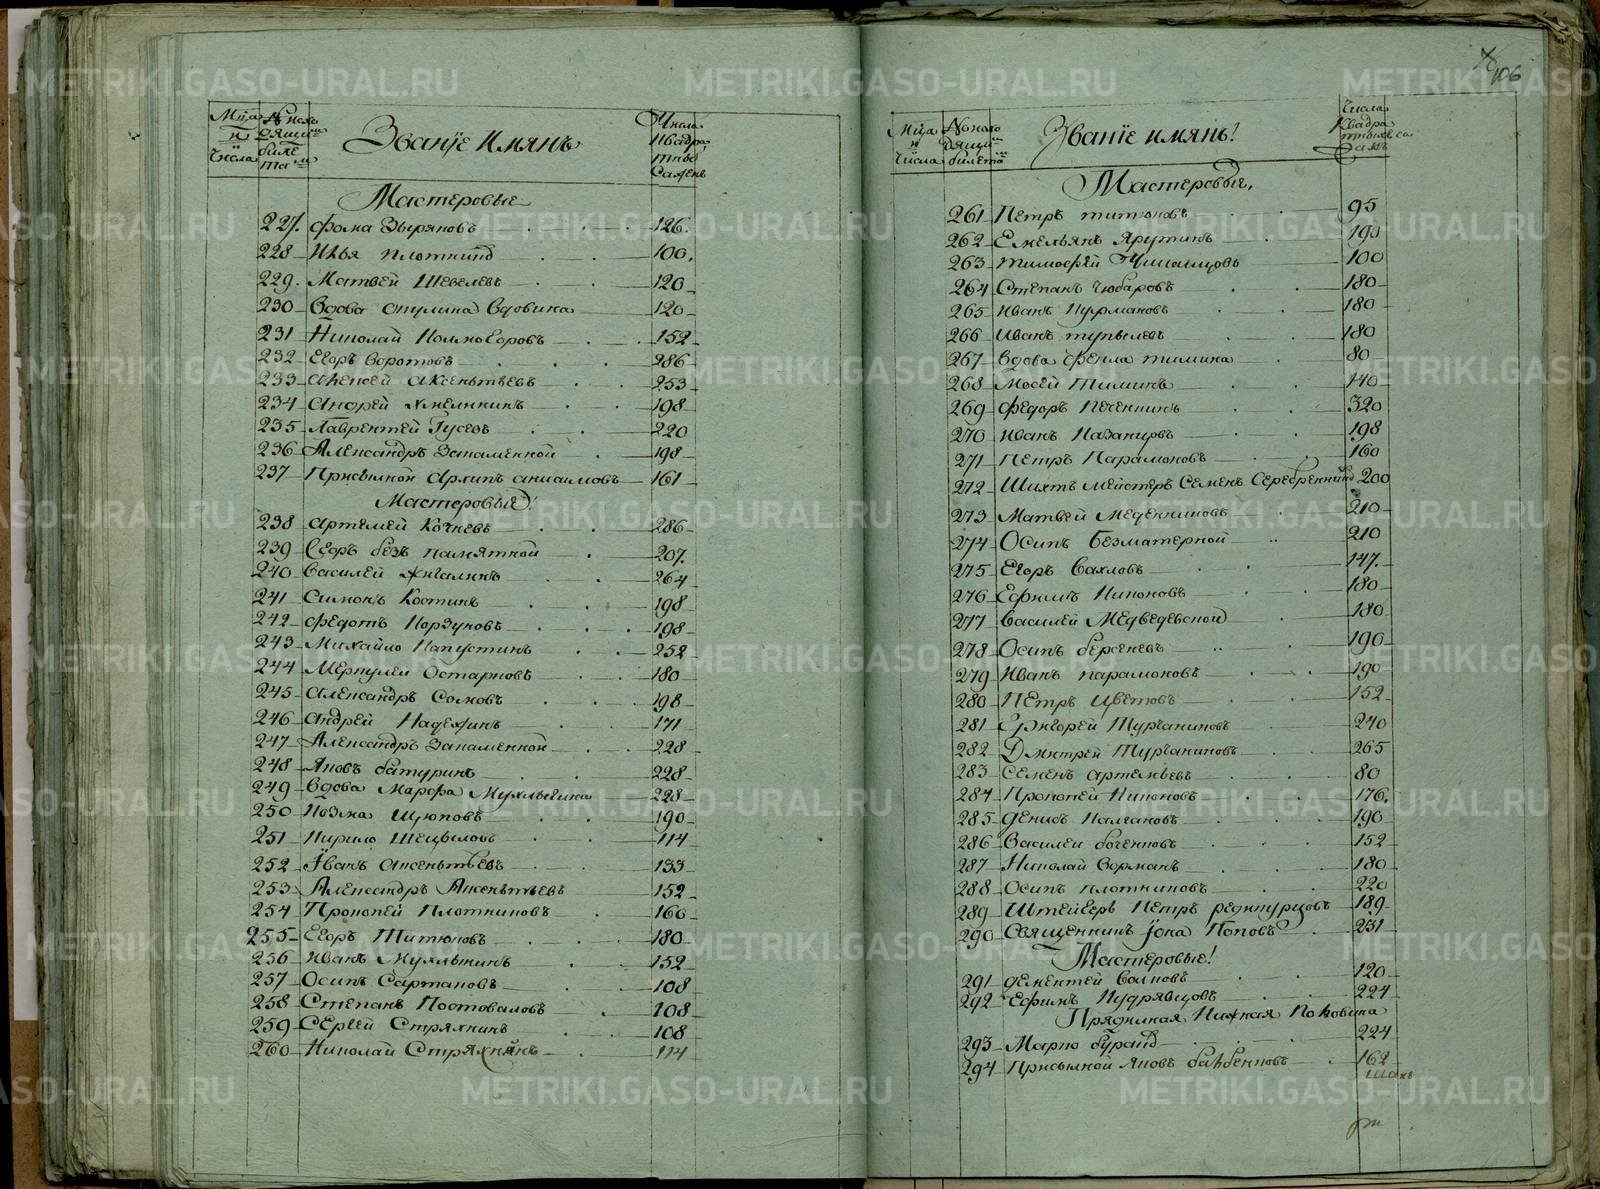 106
Мца и Числа
№ исходящимъ билетамъ
Званїе имянъ
Числа квадратныхъ саженъ
Мастеровые
227. Фома Зыряновъ 126.
228 Илья Плоткинъ 100.
229. Матвей Шевелевъ 120
230 Вдова Вдовина 120
231 Николай Полиоегоровъ 152
232 Егоръ Воротовъ 286
233 Алексей Аксеньтьевъ 253
234 Андрей Хмелининъ 198
235 Лаврентей Гусевъ 220
236 Александръ 198
237 Присылной Архипъ Анисимовъ 161
Мастеровые
238 Артемей Кочневъ 286
239 Егоръ Безъ памятной 207.
240 Василей Жигалинъ 264
241 Симонъ Костинъ 198
242 Федотъ Корзуновъ 198
243 Михайло Капустинъ 252
244 Меркулей 180
245 Александръ Сомовъ 198
246 Андрей Надежинъ 171
247 Александръ Закаменной 228
248 Яковъ Батуринъ 228
249 Вдова Марфа Мухлынина 228
250 Козма Щюповъ 190
251 Кирило 114
252 Їванъ Аксеньтьевъ 133
253 Александръ Аксеньтьевъ 152
254 Прокопей Плотниковъ 160
255 Егоръ Титюковъ 180
256 Иванъ Мухлынинъ 152
257 Осипъ Сартаковъ 108
258 Степанъ Постоваловъ 208
259 Сергей Стряхнинъ 108
260 Николай Стряхнинъ 114
Мца и Числа
№ исходящимъ билетамъ
Званїе имянъ!
Числа квадратныхъ саженъ
Мастеровые,
261 Петръ Титюковъ 95
262 Емельянъ Ярутинъ 190
263 Тимофей 100
264 Степанъ Чюбаровъ 180
265 Иванъ Курмаковъ 180
266 Иванъ Тупылевъ 180
267 Вдова Фекла Тимина 80
268 Мосей Тиминъ 140
269 Федоръ Печенкинъ 320
270 Иванъ Казанцовъ 198
271 Петръ Парамоновъ 160
272 Шихтъ мейстеръ Семенъ Серебренниковъ 200
273 Матвей Меденниковъ 210
274 Осипъ Безматерной 210
275 Егоръ Вахловъ 147.
276 Ефимъ Никоновъ 180
277 Василей Медведевской 180
278 Осипъ Берсеневъ 190
279 Иванъ Парамоновъ 190
280 Петръ Цветовъ 152
281 Григорей Турчаниновъ 240
282 Дмитрей Турчаниновъ 265
283 Семенъ Артемьевъ 80
284 Прокопей Никоновъ 176.
285 Денисъ Калгановъ 190
286 Василей Боченковъ 152
287 Николай Ворманъ 180
288 Осипъ Плотниковъ 220
289 Штейгеръ Петръ Редикурцовъ 189
290 Священникъ Їона Поповъ 231
Мастеровые!
291 Дементей Волковъ 120
292 Ефимъ Кудрявцовъ 224
293 224
294 Присылной Яковъ 162
METRIKI.GASO-URAL.RU